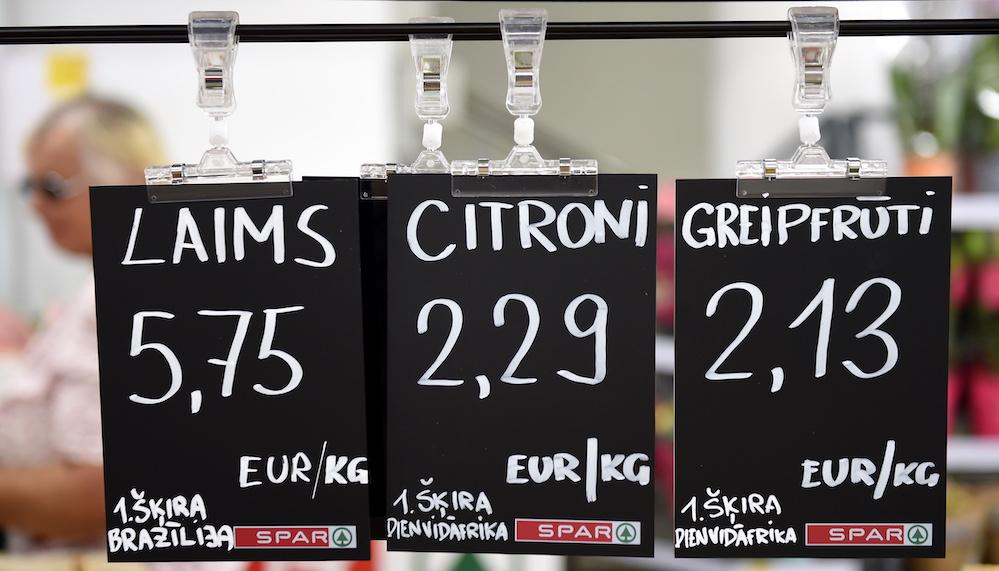 LAIMS
5,75
EUR/KG
1.ŠĶIRA
BRAZĪLIJA
SPAR
CITRONI
2,29
EUR/KG
1.ŠĶIRA
DIENVIDĀFRIKA
SPAR
GREIPFRŪTI
2,13
EUR/KG
1.ŠĶIRA
DIENVIDĀFRIKA
SPAR